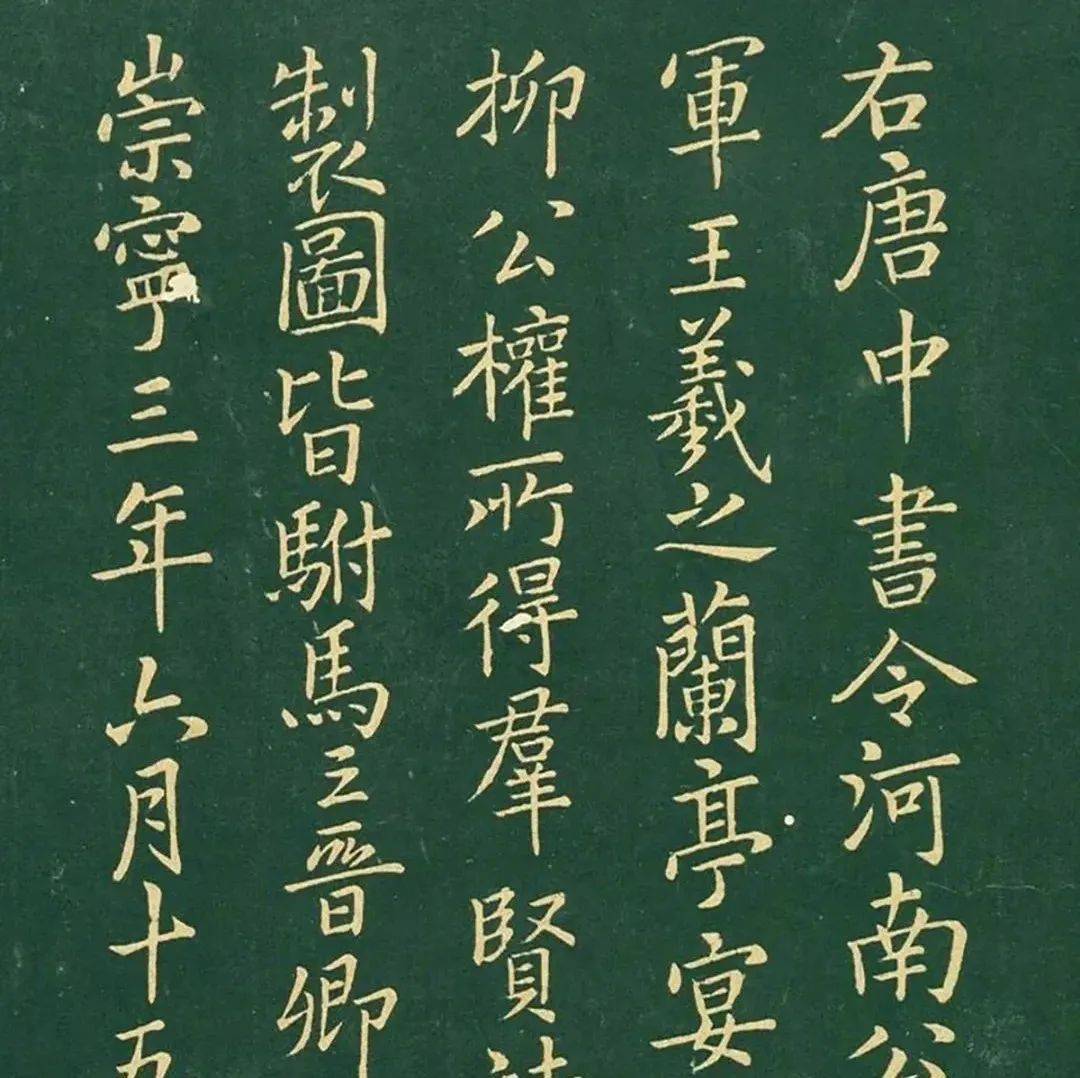 右唐中書令河南公
軍王羲之蘭亭宴
柳公權所得羣賢詩
製圖皆駙馬王晉卿
崇寧三年六月十五